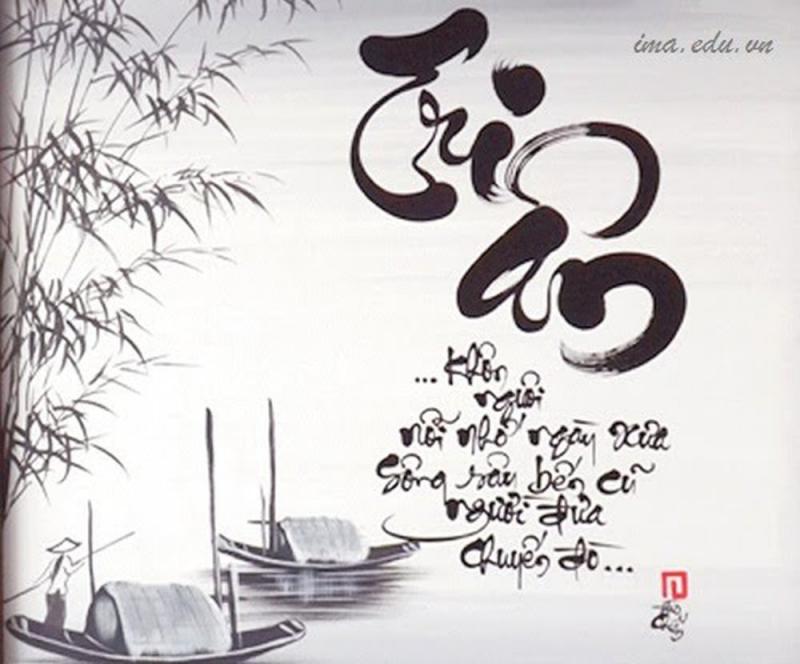 ima.edu.vn
Tri
ân
... Khôn
nguôi
nỗi nhớ ngày xưa
Sông sâu bến cũ
người đưa
chuyến đò...